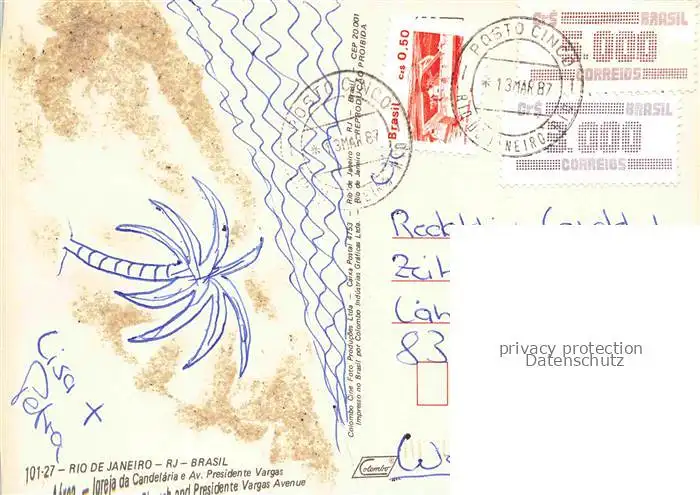 Cr$ BRASIL
5.000
CORREIOS
Cr$ BRASIL
.000
CORREIOS
Brasil Cr$ 0,50
POSTO CINCO
13 MAR 87
RIO DE JANEIRO
POSTO CINCO
13 MAR 87
Colombo Cine Foto Produções Ltda — Caixa Postal 4753 — Rio de Janeiro — RJ — Brasil CEP 20001
Impresso no Brasil por Colombo Indústrias Gráficas Ltda. — Rio de Janeiro REPRODUÇÃO PROIBIDA
83
privacy protection
Datenschutz
Lisa x
Petra
Colombo
101-27 — RIO DE JANEIRO — RJ — BRASIL
Aérea — Igreja da Candelária e Av. Presidente Vargas
Church and Presidente Vargas Avenue